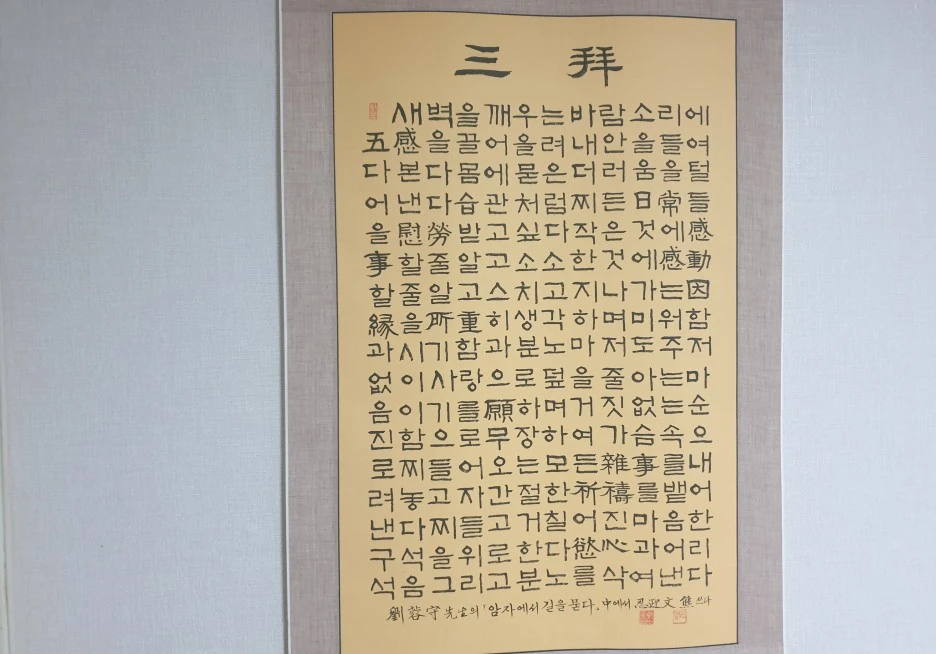 三 拜
새벽을깨우는바람소리에
五感을끌어올려내안을들여
다본다몸에묻은더러움을털
어낸다습관처럼찌든日常들
을慰勞받고싶다작은것에感
事할줄알고소소한것에感動
할줄알고스치고지나가는因
緣을所重히생각하며미워함
과시기함과분노마저도주저
없이사랑으로덮을줄아는마
음이기를願하며거짓없는순
진함으로무장하여가슴속으
로찌들어오는모든雜事를내
려놓고자간절한祈禱를뱉어
낸다찌들고거칠어진마음한
구석을위로한다慾心과어리
석음그리고분노를삭여낸다
劉蓉守 先生의 '암자에서 길을 묻다, 中에서 文 熊 쓰다